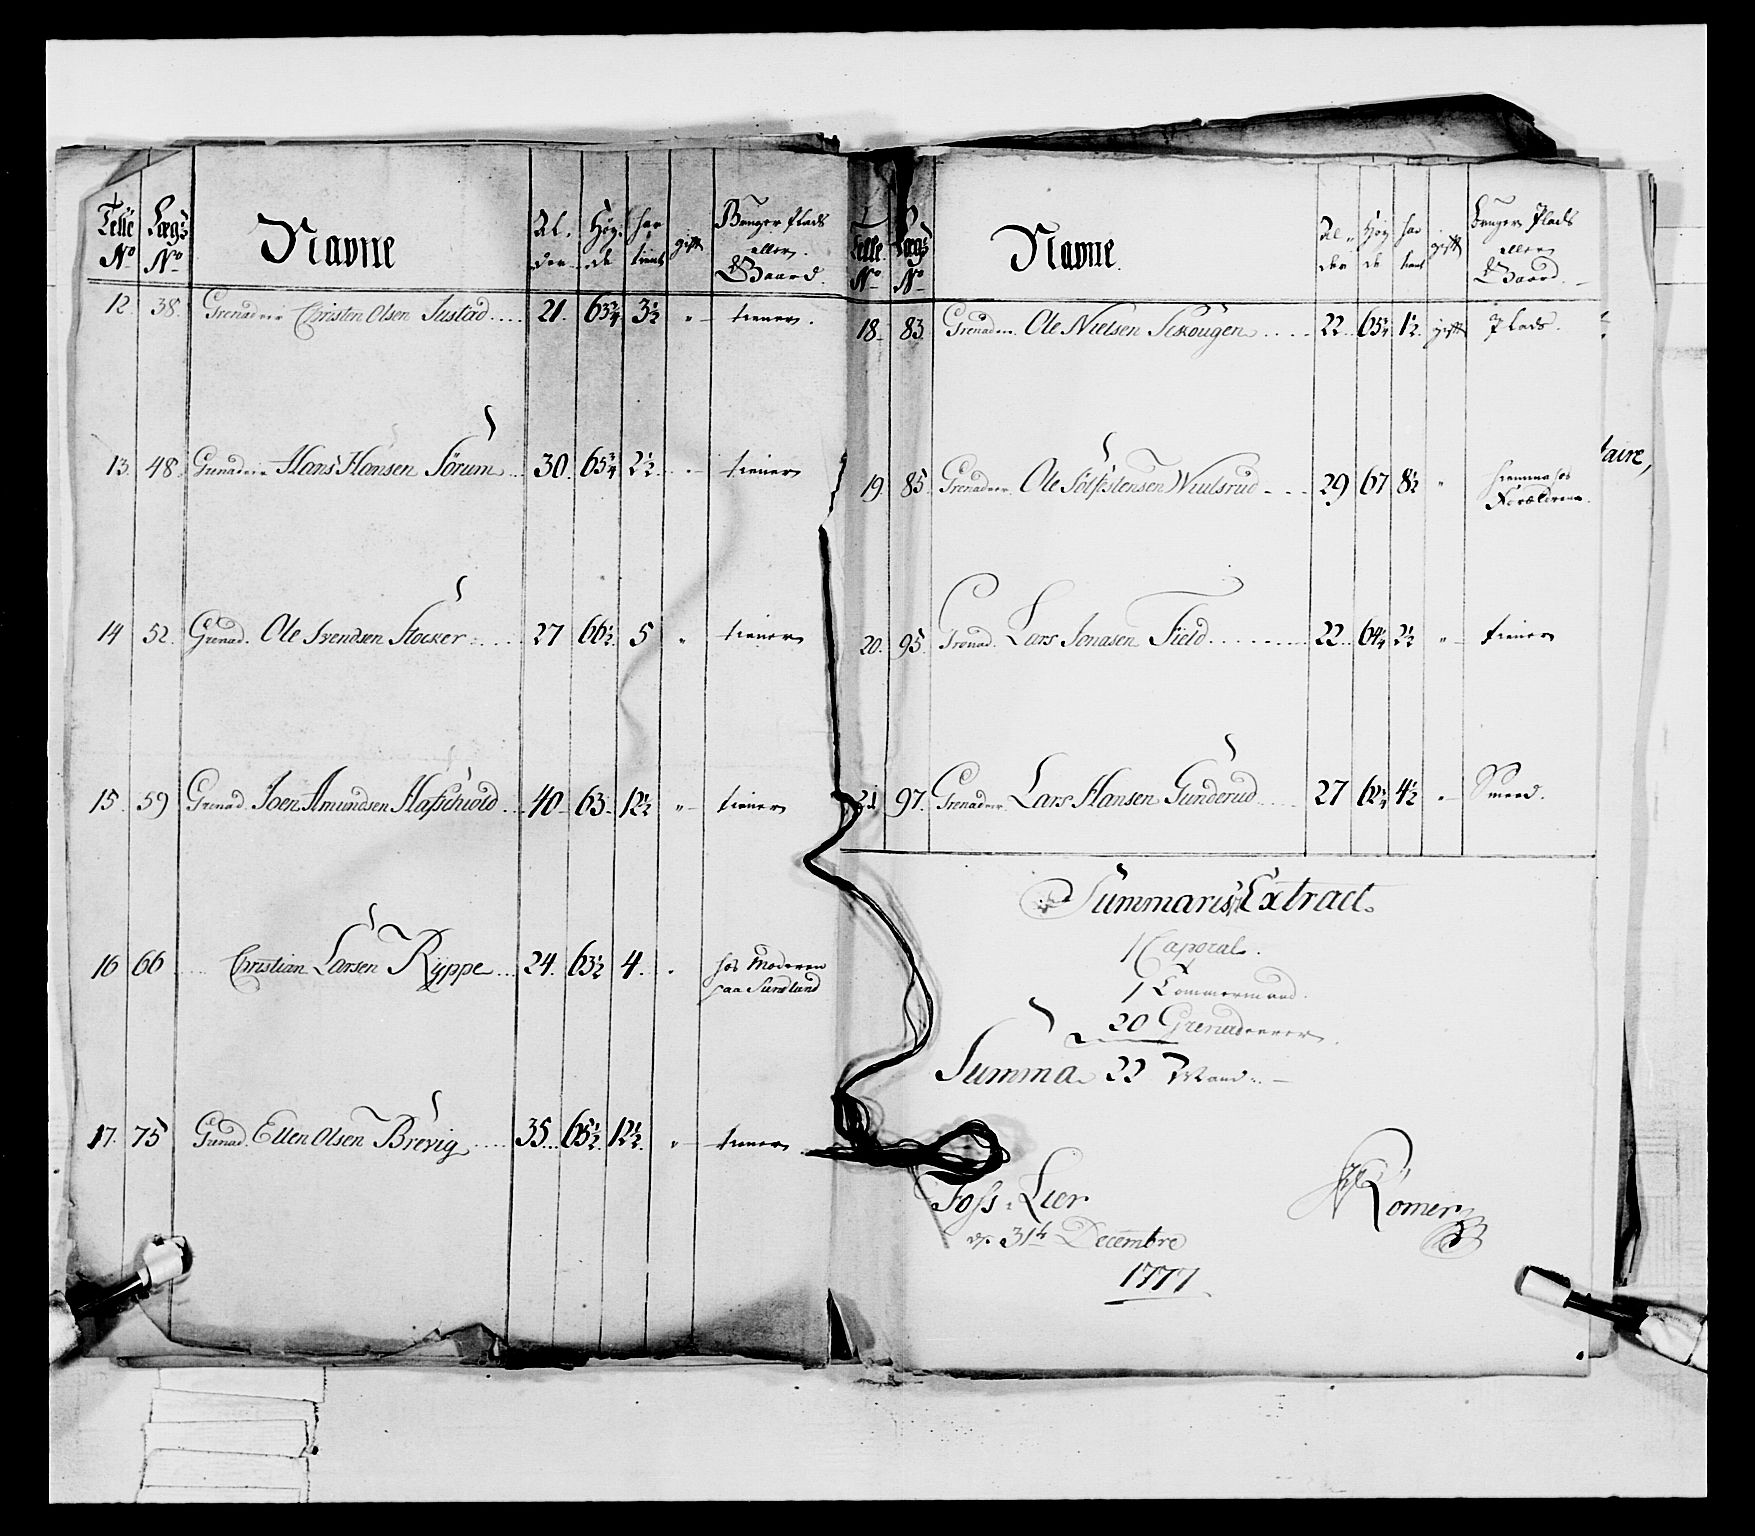 Telle No Lægs No Navne Al-der Høy-de har tient gift Bruger Plads eller Gaard.
12. 38. Grenadeer Christen Olsen Justad .... 21. 63¾ 3½ " tiener.
13. 48. Grenadeer Hans Hansen Sørum ... 30. 65¾ 2½ " tiener
14 52. Grenad. Ole Svendsen Stocker ..... 27 66½ 5 " tiener
15. 59 Grenad. Joen Amundsen Hafschiold ... 40 63 12½ " tiener
16 66 .... Christian Larsen Ryppe ... 24. 63½ 4. " hos Moderen
paa Sundland
17. 75 Grenad. Ellen Olsen Brevig ..... 35... 65½ 12½. " tiener.
Telle No Lægs No Navne. Al-der Høy-de har tient gift Bruger Plads eller Gaard.
18. 83. Grenadeer. Ole Nielsen Skougen .... 22. 65¾ 1½. gift Plads.
19. 85. Grenadeer. Ole Wiulsrud .... 29 67 8½ " hiemme hos
Forældrene.
20. 95. Grenad. Lars Jonasen Field ........ 22.. 64¼ 2½ " tiener
21 97. Grenadeer Lars Hansen Gunderud .... 27 62¾ 4½ " Smed.
Summarisk Extract.
1 Caporal.
1 Tømmermand.
20 Grenadeerer.
Summa 22 Mand.
Foss i Lier
d. 31te Decembre
1777
Römer
taire,